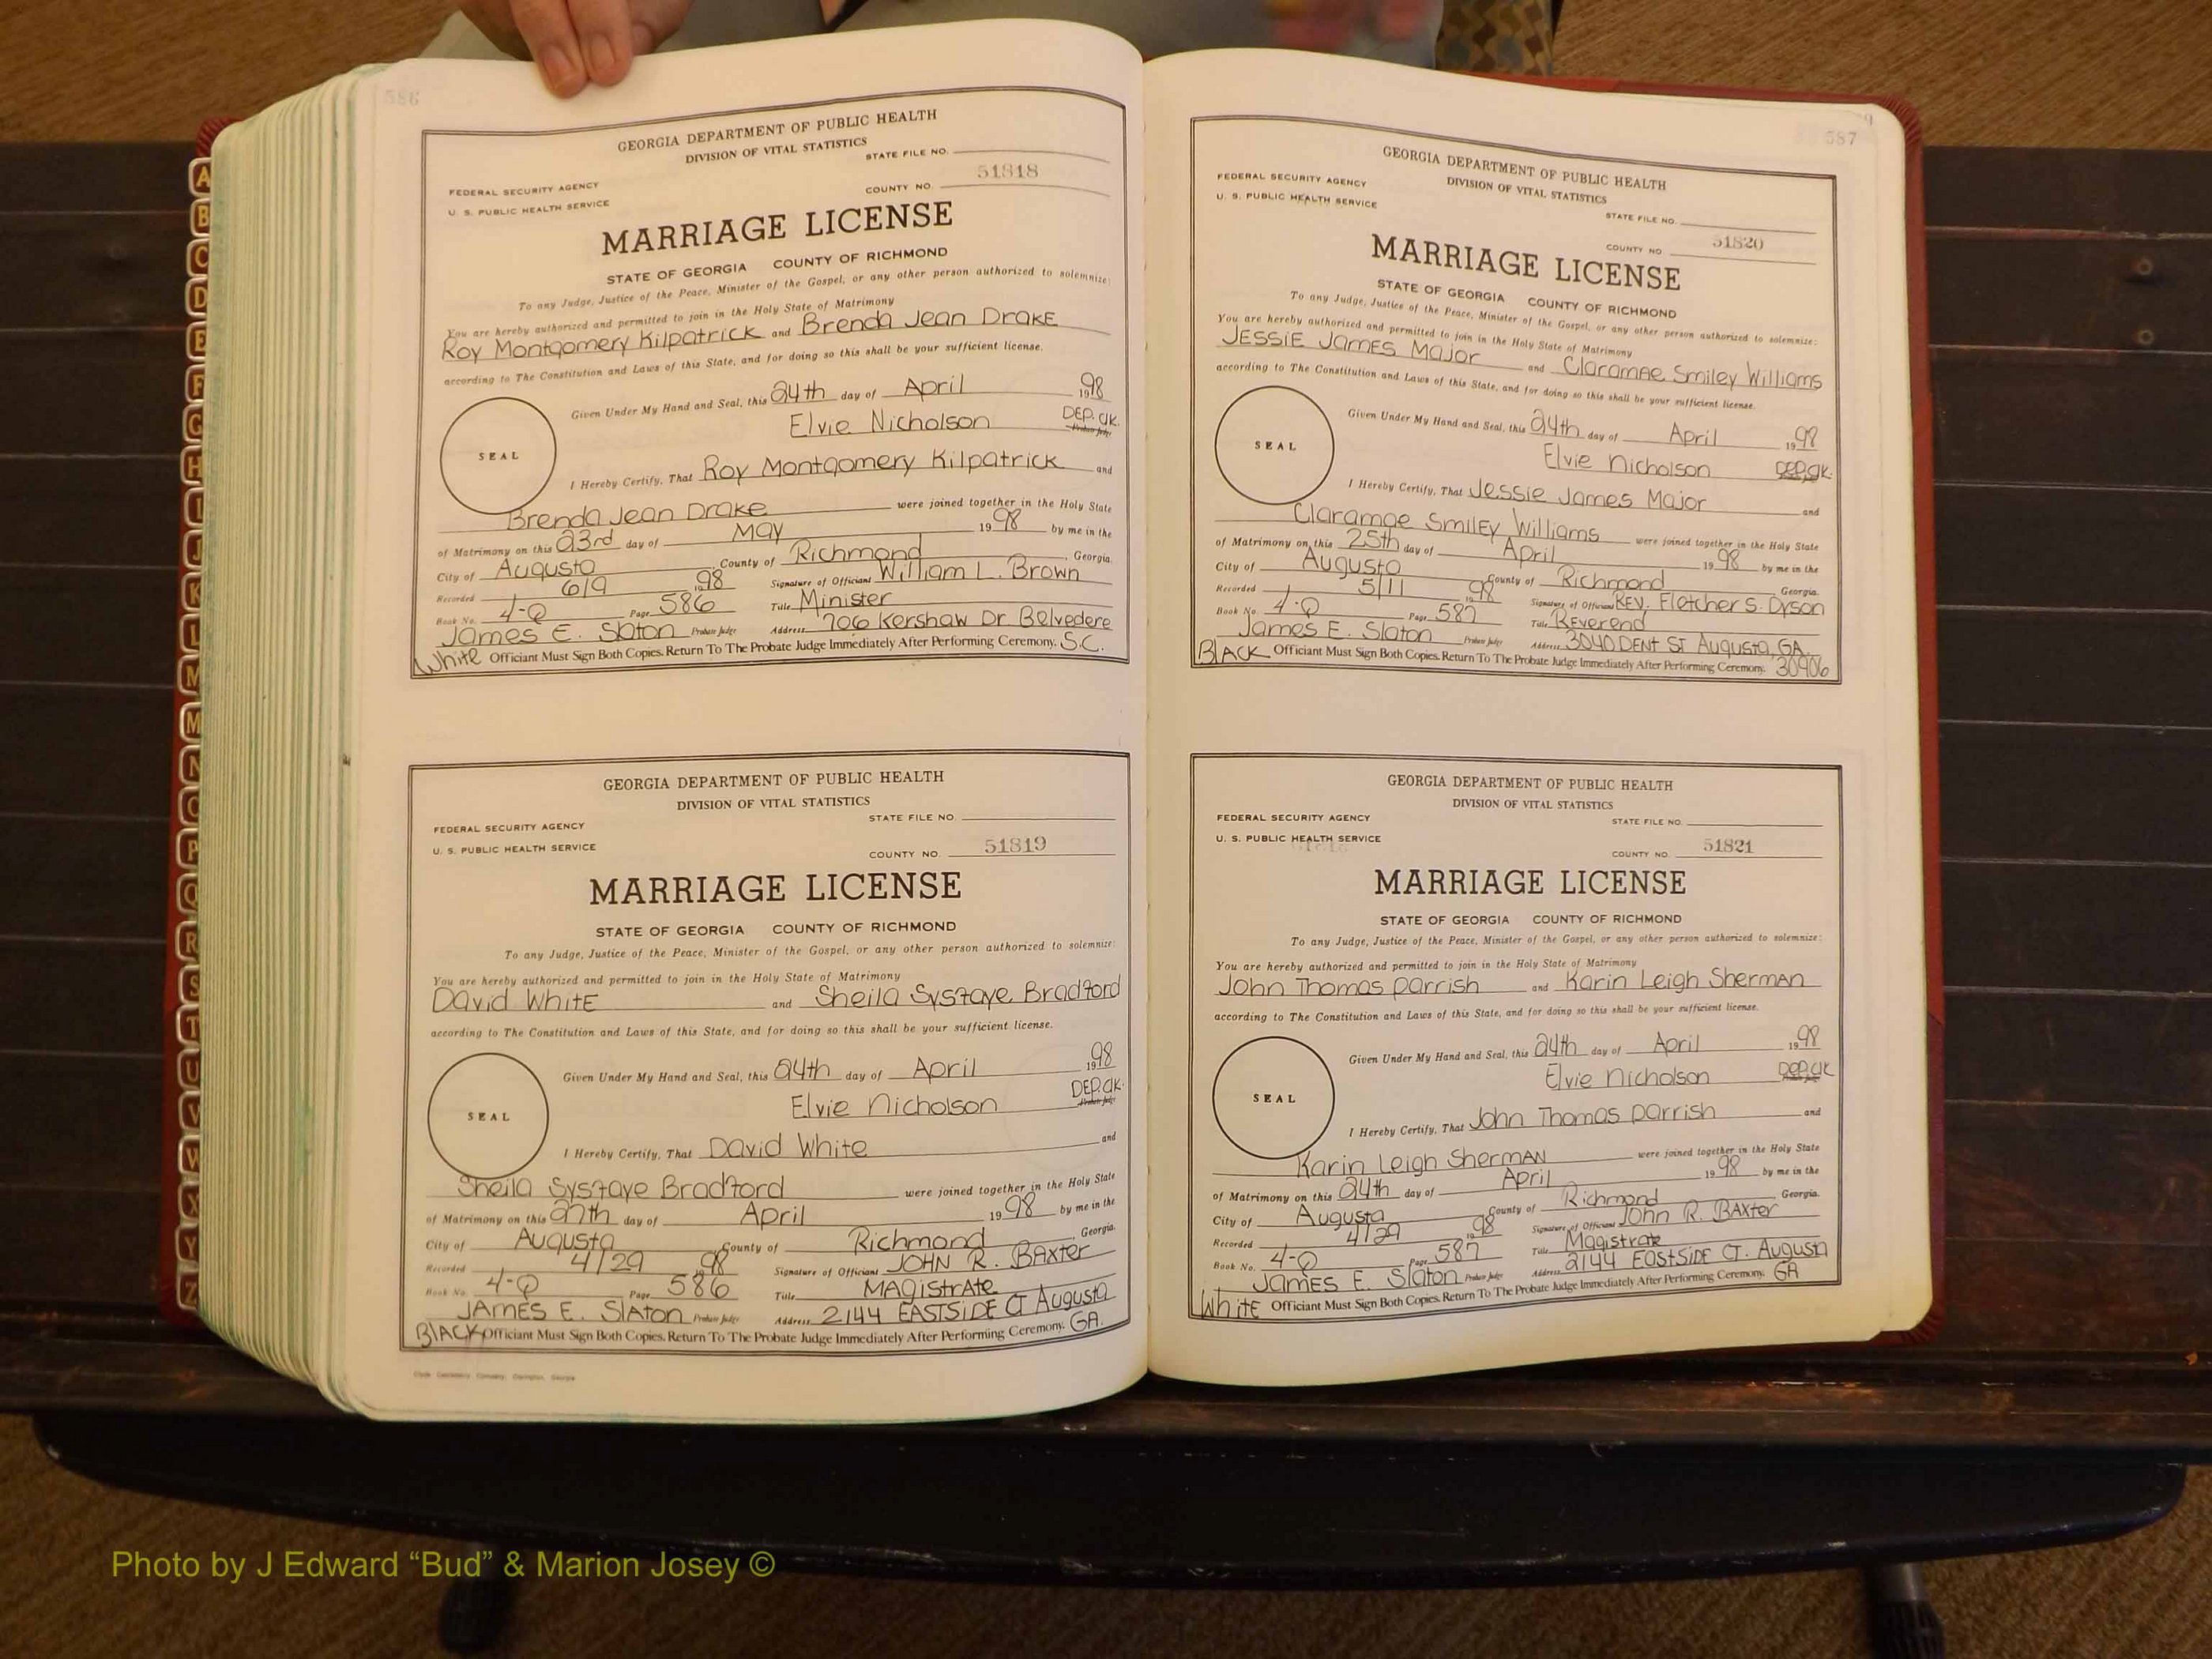 586
GEORGIA DEPARTMENT OF PUBLIC HEALTH
DIVISION OF VITAL STATISTICS
STATE FILE NO.
FEDERAL SECURITY AGENCY
U. S. PUBLIC HEALTH SERVICE
COUNTY NO. 51818
MARRIAGE LICENSE
STATE OF GEORGIA COUNTY OF RICHMOND
To any Judge, Justice of the Peace, Minister of the Gospel, or any other person authorized to solemnize:
You are hereby authorized and permitted to join in the Holy State of Matrimony
Roy Montgomery Kilpatrick and Brenda Jean Drake
according to The Constitution and Laws of this State, and for doing so this shall be your sufficient license.
Given Under My Hand and Seal, this 24th day of April 1998
Elvie Nicholson DEP. CK. Probate Judge
SEAL
I Hereby Certify, That Roy Montgomery Kilpatrick and
Brenda Jean Drake were joined together in the Holy State
of Matrimony on this 23rd day of May 1998 by me in the
City of Augusta County of Richmond, Georgia.
Recorded 6/9 1998 Signature of Official William L. Brown
Book No. 4-Q Page 586 Title Minister
James E. Slaton Probate Judge Address 706 Kershaw Dr Belvedere
White Officiant Must Sign Both Copies. Return To The Probate Judge Immediately After Performing Ceremony. S.C.
GEORGIA DEPARTMENT OF PUBLIC HEALTH
DIVISION OF VITAL STATISTICS
STATE FILE NO.
FEDERAL SECURITY AGENCY
U. S. PUBLIC HEALTH SERVICE
COUNTY NO. 51819
MARRIAGE LICENSE
STATE OF GEORGIA COUNTY OF RICHMOND
To any Judge, Justice of the Peace, Minister of the Gospel, or any other person authorized to solemnize:
You are hereby authorized and permitted to join in the Holy State of Matrimony
David White and Sheila Sysfaye Bradford
according to The Constitution and Laws of this State, and for doing so this shall be your sufficient license.
Given Under My Hand and Seal, this 24th day of April 1998
Elvie Nicholson DEP. CK. Probate Judge
SEAL
I Hereby Certify, That David White and
Sheila Sysfaye Bradford were joined together in the Holy State
of Matrimony on this 27th day of April 1998 by me in the
City of Augusta County of Richmond, Georgia.
Recorded 4/29 1998 Signature of Official JOHN R. BAxter
Book No. 4-Q Page 586 Title MAgistrAte
JAMES E. SlAton Probate Judge Address 2144 EASTSIDE CT Augusta
BlACK Officiant Must Sign Both Copies. Return To The Probate Judge Immediately After Performing Ceremony. GA.
587
GEORGIA DEPARTMENT OF PUBLIC HEALTH
DIVISION OF VITAL STATISTICS
FEDERAL SECURITY AGENCY
U. S. PUBLIC HEALTH SERVICE
STATE FILE NO.
COUNTY NO. 51820
MARRIAGE LICENSE
STATE OF GEORGIA COUNTY OF RICHMOND
To any Judge, Justice of the Peace, Minister of the Gospel, or any other person authorized to solemnize:
You are hereby authorized and permitted to join in the Holy State of Matrimony
JESSIE James Major and Claramae Smiley Williams
according to The Constitution and Laws of this State, and for doing so this shall be your sufficient license.
Given Under My Hand and Seal, this 24th day of April 1998
Elvie Nicholson DEP. CK.
SEAL
I Hereby Certify, That Jessie James Major and
Claramae Smiley Williams were joined together in the Holy State
of Matrimony on this 25th day of April 1998 by me in the
City of Augusta County of Richmond Georgia.
Recorded 5/11 1998 Signature of Official REV. Fletcher S. Dyson
Book No. 4-Q Page 587 Title Reverend
James E. Slaton Probate Judge Address 3040 DENT ST Augusta, GA.
BlACK Officiant Must Sign Both Copies. Return To The Probate Judge Immediately After Performing Ceremony. 30906
GEORGIA DEPARTMENT OF PUBLIC HEALTH
DIVISION OF VITAL STATISTICS
FEDERAL SECURITY AGENCY
STATE FILE NO.
U. S. PUBLIC HEALTH SERVICE
COUNTY NO. 51821
MARRIAGE LICENSE
STATE OF GEORGIA COUNTY OF RICHMOND
To any Judge, Justice of the Peace, Minister of the Gospel, or any other person authorized to solemnize:
You are hereby authorized and permitted to join in the Holy State of Matrimony
John Thomas Parrish and Karin Leigh ShermAN
according to The Constitution and Laws of this State, and for doing so this shall be your sufficient license.
Given Under My Hand and Seal, this 24th day of April 1998
Elvie Nicholson DEP. CK.
SEAL
I Hereby Certify, That John Thomas Parrish and
Karin Leigh ShermAN were joined together in the Holy State
of Matrimony on this 24th day of April 1998 by me in the
City of Augusta County of Richmond, Georgia.
Recorded 4/29 1998 Signature of Official John R. BAxter
Book No. 4-Q Page 587 Title Magistrate
JAMES E. Slaton Probate Judge Address 2144 EAStSIDE CT. Augusta
White Officiant Must Sign Both Copies. Return To The Probate Judge Immediately After Performing Ceremony. GA
A
B
C
D
E
F
G
H
I
J
K
L
M
M
N
O
P
Q
R
S
T
U
V
W
X
Y
Z
Photo by J Edward “Bud” & Marion Josey ©